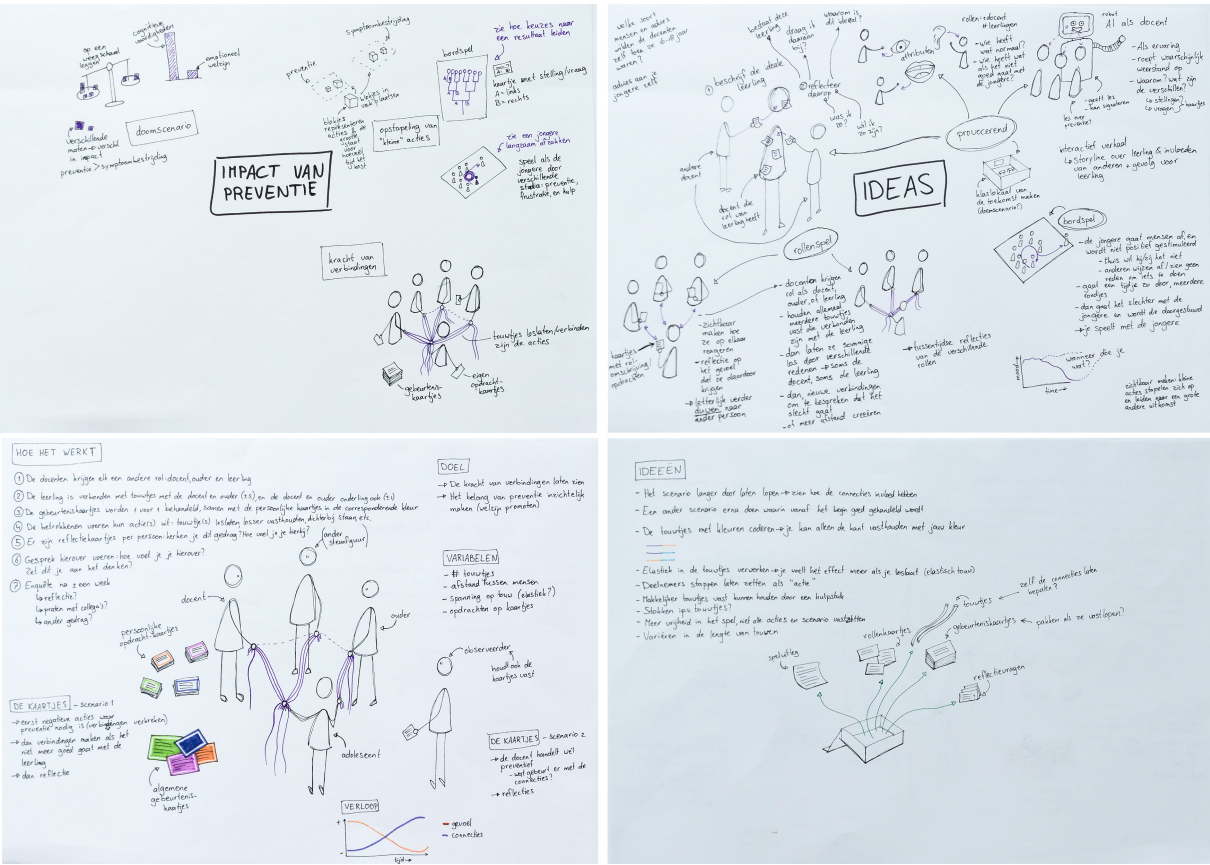 IMPACT VAN
PREVENTIE
op een
weegschaal
leggen
cognitieve
vaardigheden
emotioneel
welzijn
verschillende
maten → verschil
in impact
preventie > symptoombestrijding
doomscenario
preventie
symptoombestrijding
blokjes in vorm plaatsen
blokjes
representeren
acties & de
grootte
staat
voor
hoeveel
tijd het
kost
opstapeling van
"kleine" acties
bordspel
A
B
zie hoe keuzes naar
een resultaat leiden
kaartje met stelling/vraag
A = links
B = rechts
zie een jongere
langzaam afzakken
speel als de
jongere door
verschillende
stadia: preventie,
frustratie, en hulp
kracht van
verbindingen
touwtjes loslaten/verbinden
zijn de acties
gebeurtenis-
kaartjes
eigen
opdracht-
kaartjes
IDEAS
welke soort
mensen en advies
wilden de docenten
zelf toen ze 16-18 jaar
waren?
advies aan je
jongere zelf
① beschrijf de ideale
leerling
bestaat deze
leerling
draag ik
daaraan
bij?
waarom is
dit ideaal?
② reflecteer
daarop
was ik
zo?
wil ik
zo zijn?
andere
docent
docent die
rol van
leerling heeft
attributen?
rollen: 1 docent
# leerlingen
- wie heeft
wat nodig?
- wie heeft wat
als het niet
goed gaat met
de jongere?
robot
AI als docent
- Als ervaring
- roept waarschijnlijk
weerstand op
- waarom? wat zijn
de verschillen?
↳ stellingen
↳ vragen
kaartjes
- geeft les
- kan signaleren
les over
preventie?
provocerend
klaslokaal van
de toekomst maken
(doomscenario?)
interactief verhaal
↳ storyline over leerling & invloeden
van anderen + gevolg voor
leerling
bordspel
- de jongere gaat mensen af, en
wordt niet positief gestimuleerd
- thuis wil hij/zij het niet
- anderen wijzen af / zien geen
reden om iets te doen
- gaat een tijdje zo door, meerdere
rondjes
- dan gaat het slechter met de
jongere en wordt die doorgestuurd
→ je speelt met de jongere
mood
time →
wanneer doe je
wat?
zichtbaar maken: kleine
acties stapelen zich op
en leiden naar een grote
andere uitkomst
rollenspel
kaartjes
met rol-
omschrijving/
opdrachten
- zichtbaar
maken hoe
ze op elkaar
reageren
- reflectie op
het gevoel
dat ze daardoor
krijgen
→ letterlijk verder
duwen naar
ander persoon
- docenten krijgen
rol als docent,
ouder, of leerling
- houden allemaal
meerdere touwtjes
vast die verbonden
zijn met de leerling
- dan laten ze sommige
los door verschillende
redenen → soms de
docent, soms de leerling
- dan, nieuwe verbindingen
om te bespreken dat het
slecht gaat
- of meer afstand creëren
→ tussentijdse reflecties
van de verschillende
rollen
HOE HET WERKT
① De docenten krijgen elk een andere rol: docent, ouder en leerling
② De leerling is verbonden met touwtjes met de docent en ouder (±5), en de docent en ouder onderling ook (±1)
③ De gebeurteniskaartjes worden 1 voor 1 behandeld, samen met de persoonlijke kaartjes in de corresponderende kleur
④ De betrokkenen voeren hun actie(s) uit: touwtje(s) loslaten, losser vasthouden, dichterbij staan, etc.
⑤ Er zijn reflectiekaartjes per persoon: herken je dit gedrag? Hoe voel je je hierbij?
⑥ Gesprek hierover voeren: hoe voel je je hierover?
Zet dit je aan het denken?
⑦ Enquête na ± een week
↳ reflectie?
↳ praten met collega's?
↳ ander gedrag?
DOEL
→ De kracht van verbindingen laten zien
→ Het belang van preventie inzichtelijk
maken (welzijn promoten)
VARIABELEN
- # touwtjes
- afstand tussen mensen
- spanning op touw (elastiek?)
- opdrachten op kaartjes
docent
(ander
steunfiguur)
ouder
observeerder
houdt ook de
kaartjes vast
adolescent
persoonlijke
opdracht-kaartjes
DE KAARTJES - scenario 1
→ eerst negatieve acties waar
preventie nodig is (verbindingen verbreken)
→ dan verbindingen maken als het
niet meer goed gaat met de
leerling
→ dan reflectie
algemene
gebeurtenis-
kaartjes
DE KAARTJES - scenario 2
→ de docent handelt wel
preventief
- wat gebeurt er met de
connecties?
→ reflecties
VERLOOP
+
-
tijd →
gevoel
connecties
IDEEËN
- Het scenario langer door laten lopen → zien hoe de connecties invloed hebben
- Een ander scenario erna doen waarin vanaf het begin goed gehandeld wordt
- De touwtjes met kleuren coderen → je kan alleen de kant vasthouden met jouw kleur
- Elastiek in de touwtjes verwerken → je voelt het effect meer als je loslaat (elastisch touw)
- Deelnemers stappen laten zetten als "actie"
- Makkelijker touwtjes vast kunnen houden door een hulpstuk
- Stokken i.p.v. touwtjes?
- Meer vrijheid in het spel, niet alle acties en scenario vastzetten
- Variëren in de lengte van touwen
speluitleg
rollenkaartjes
touwtjes
zelf de connecties laten
bepalen?
gebeurteniskaartjes
pakken als ze vastlopen?
reflectievragen